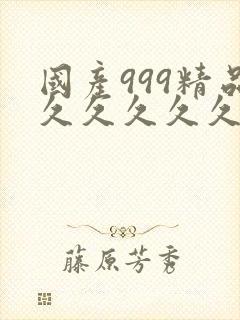 國產999精品
久久久久久
藤原芳秀